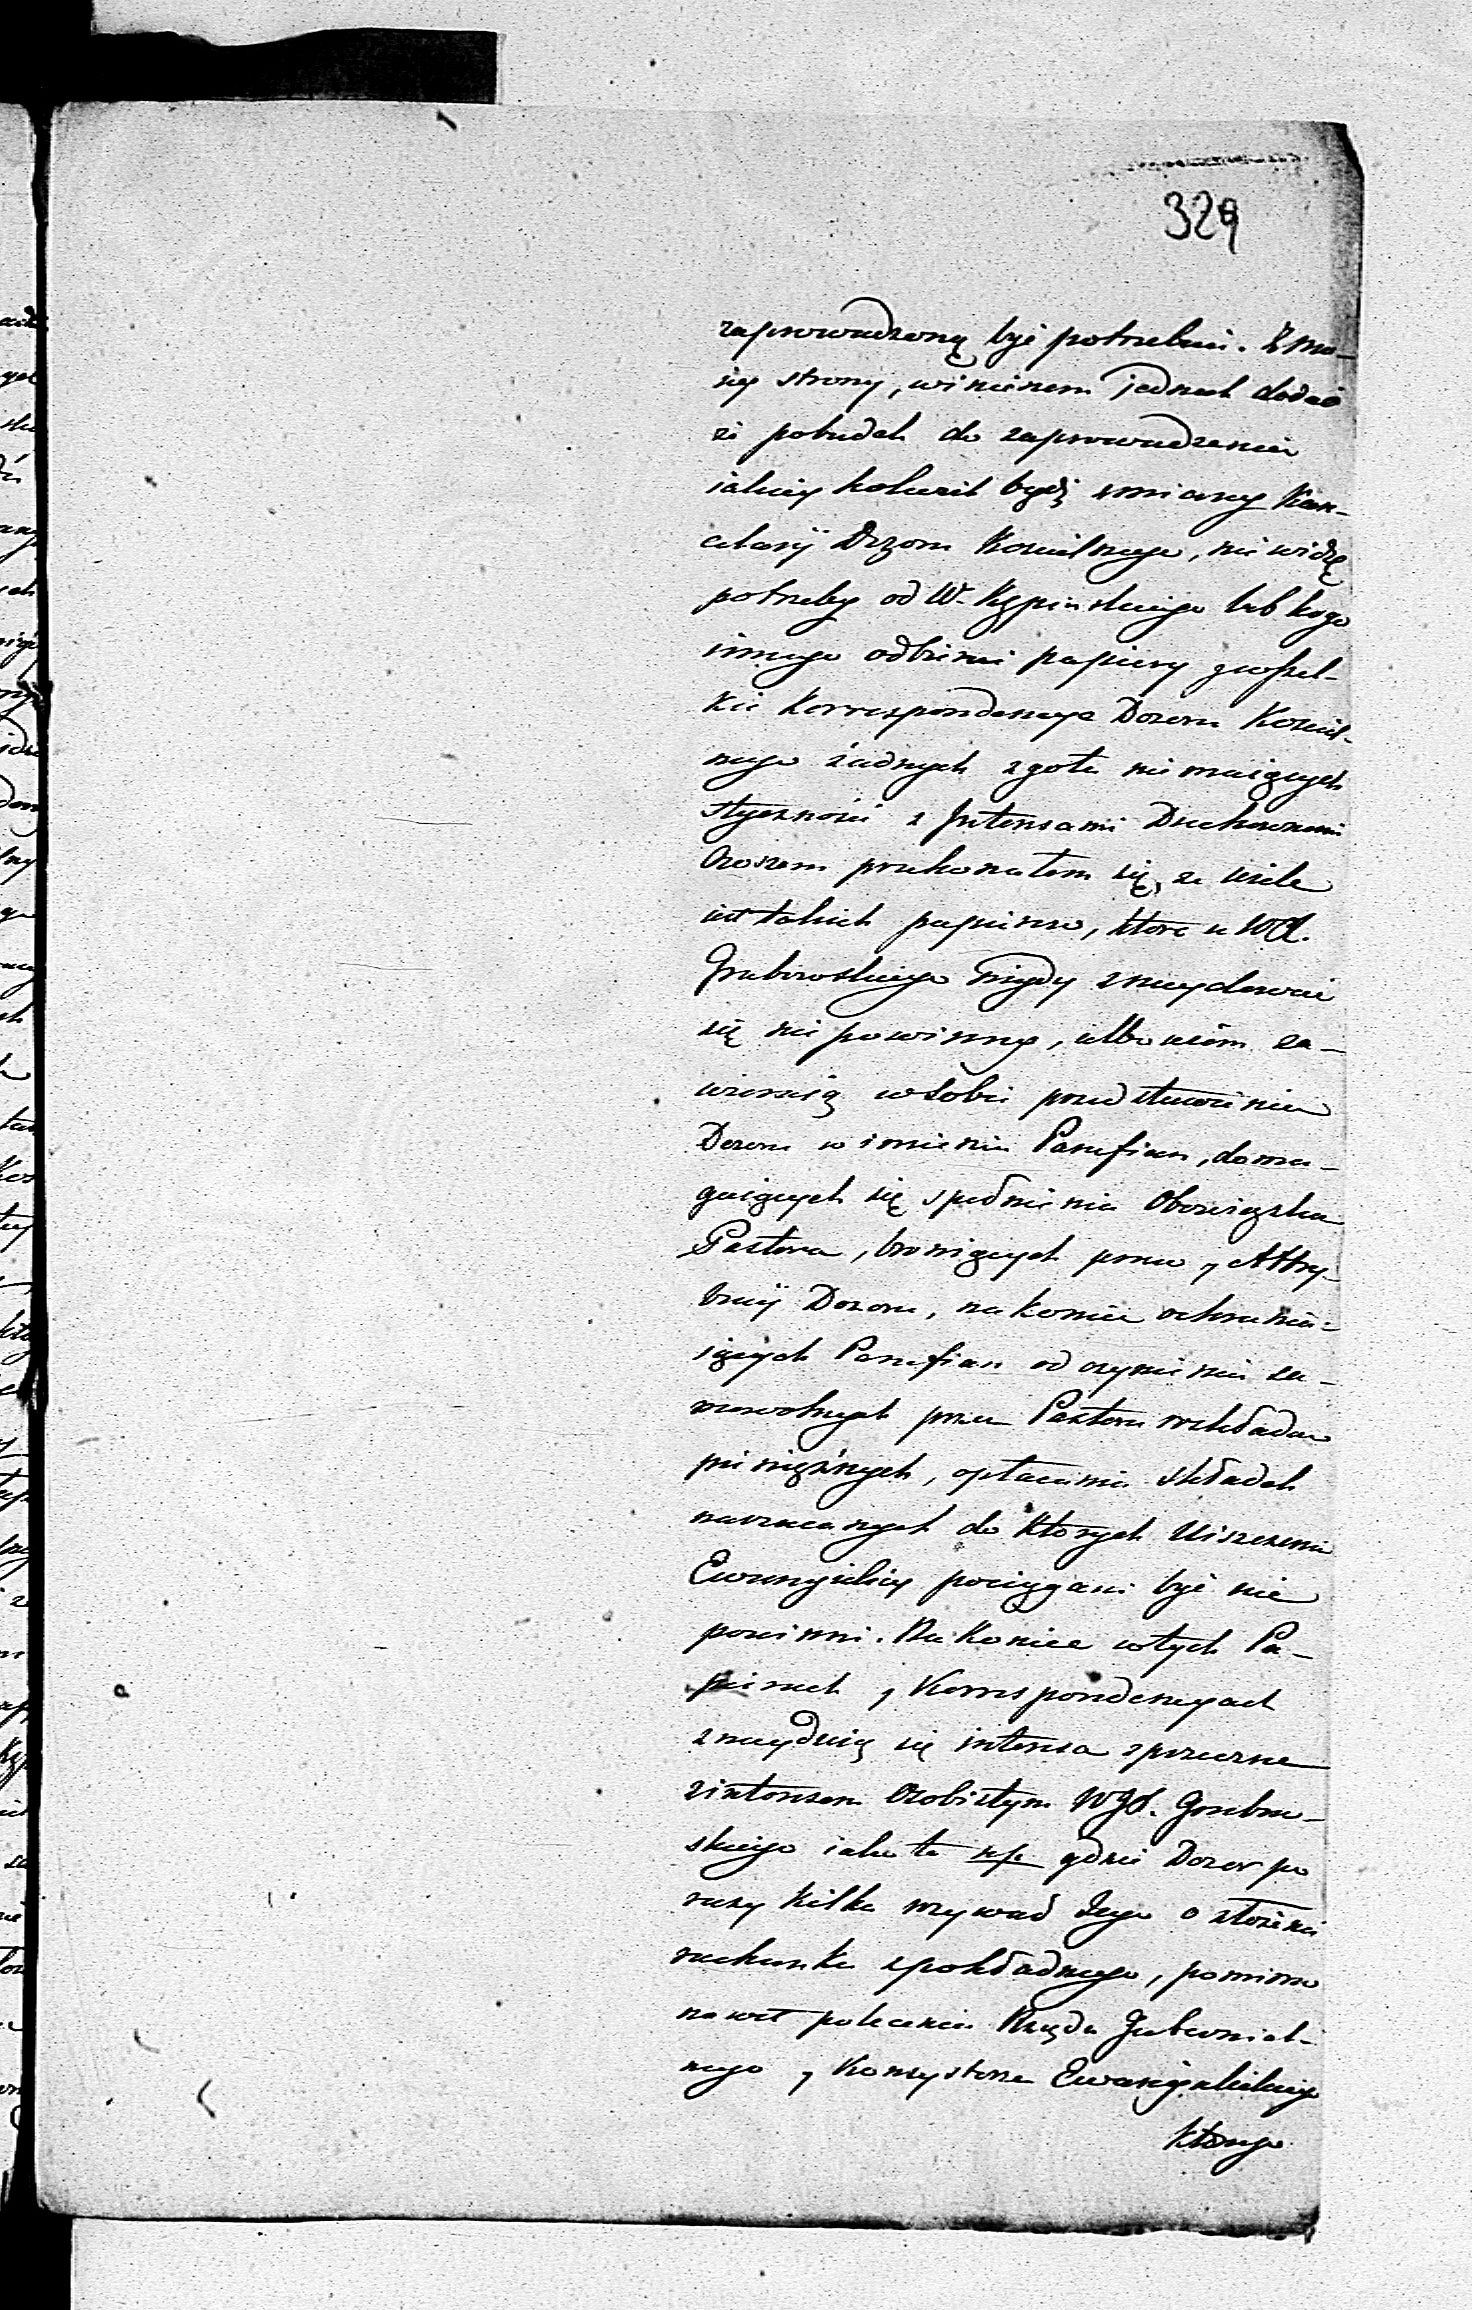 329
zaprowadzoną być potrzebui. Z mo-
iey strony, winienem jednak dodać
że pobudek do zaprowadzenia
iakiey kolwiek bądź zmiany Kan-
celaryi Dozoru Kościelnego, nie widzę
potrzeby od W. Kępińskiego lub kogo
innego odbierać papiery
Korrespondencye Dozoru Kościel-
nego żadnych zgoła nie maiących
styczności z Interesami Duchownemi
Owszem przekonałem się, że wiele
iest takich papierów, które u
Grabowskiego nigdy znaydować
się nie powinny, albowiem za-
wieraią w Sobie przedstawienia
Dozoru w imieniu Parafian, doma-
gaiących się spełnienia Obowiązku
Pastora, broniących praw y Attry-
bucyi Dozoru, na koniec ochrania-
iących Parafian od czynienia sa-
mowolnych przez Pastora rozkładów
pieniężnych, opłacania składek
narzucanych do których Uiszczenia
Ewangielicy pociągani być nie
powinni. Na koniec w tych Pa-
pierach y Korrespondencyach
znayduią się interesa sprzeczne
z intersem Osobistym Grabow-
skiego iako to np. gdzie Dozor po
razy kilka wzywał Jego o złożenie
rachunku z pokładnego, pomimo
nawet polecenia Rządu Gubernial-
nego y Konsystorza Ewangielickiego
którego